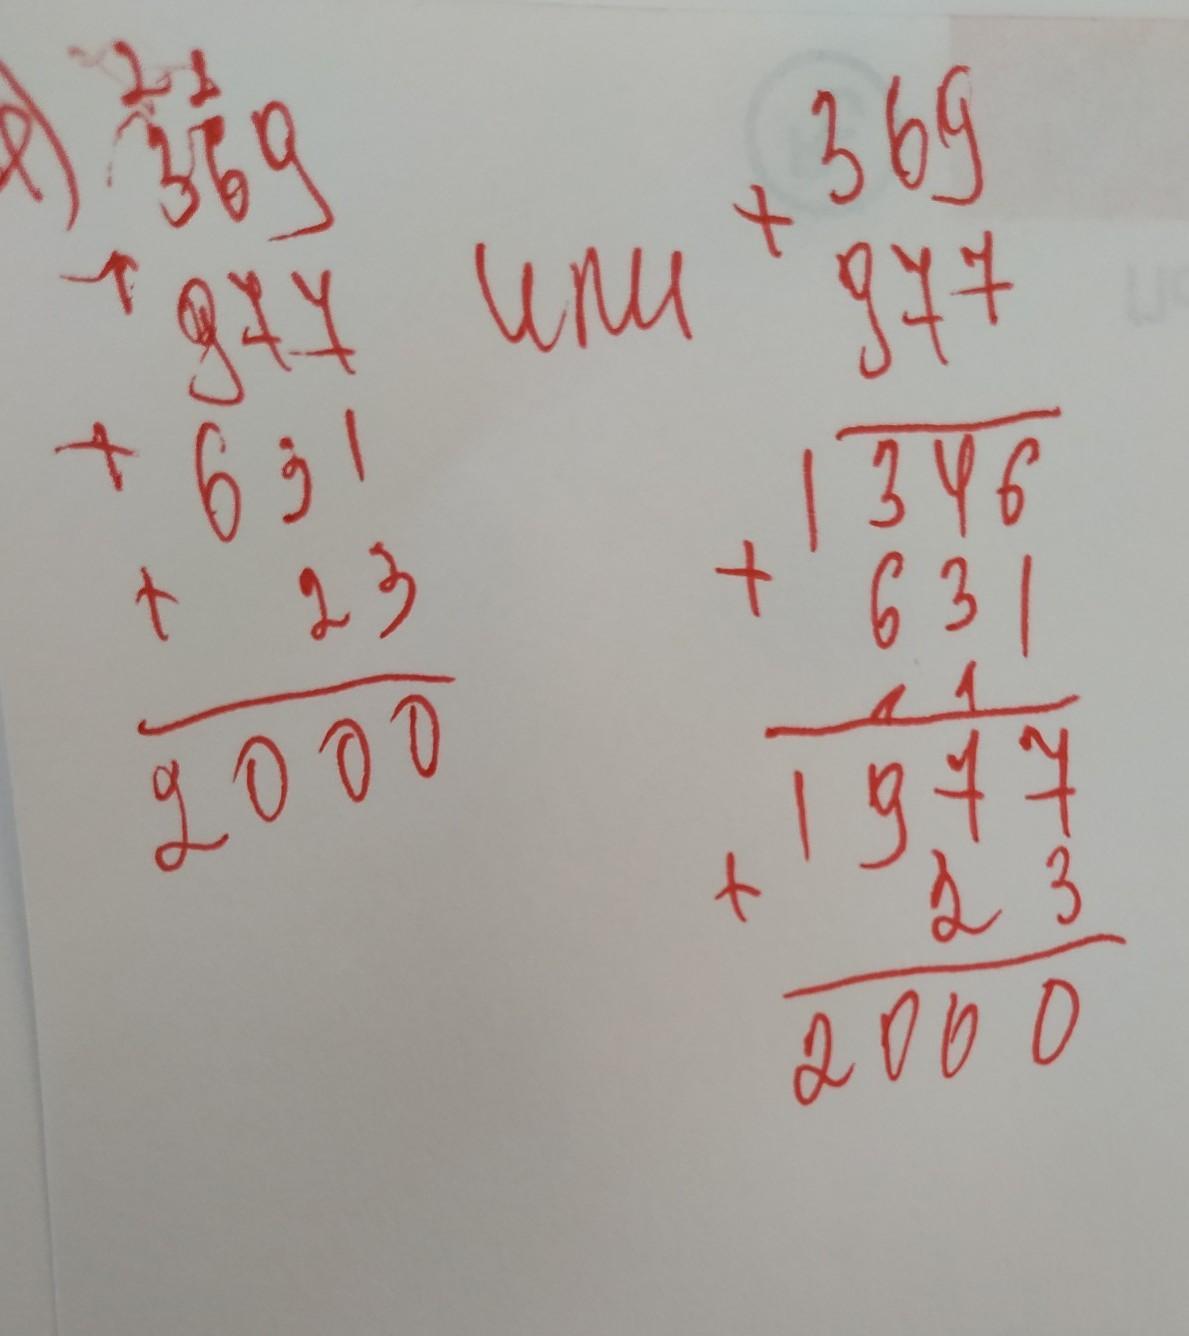 а)
2 1
369
+ 977
+ 631
+ 23
2000
или
369
+
977
1346
+ 631
1 1
1977
+ 23
2000